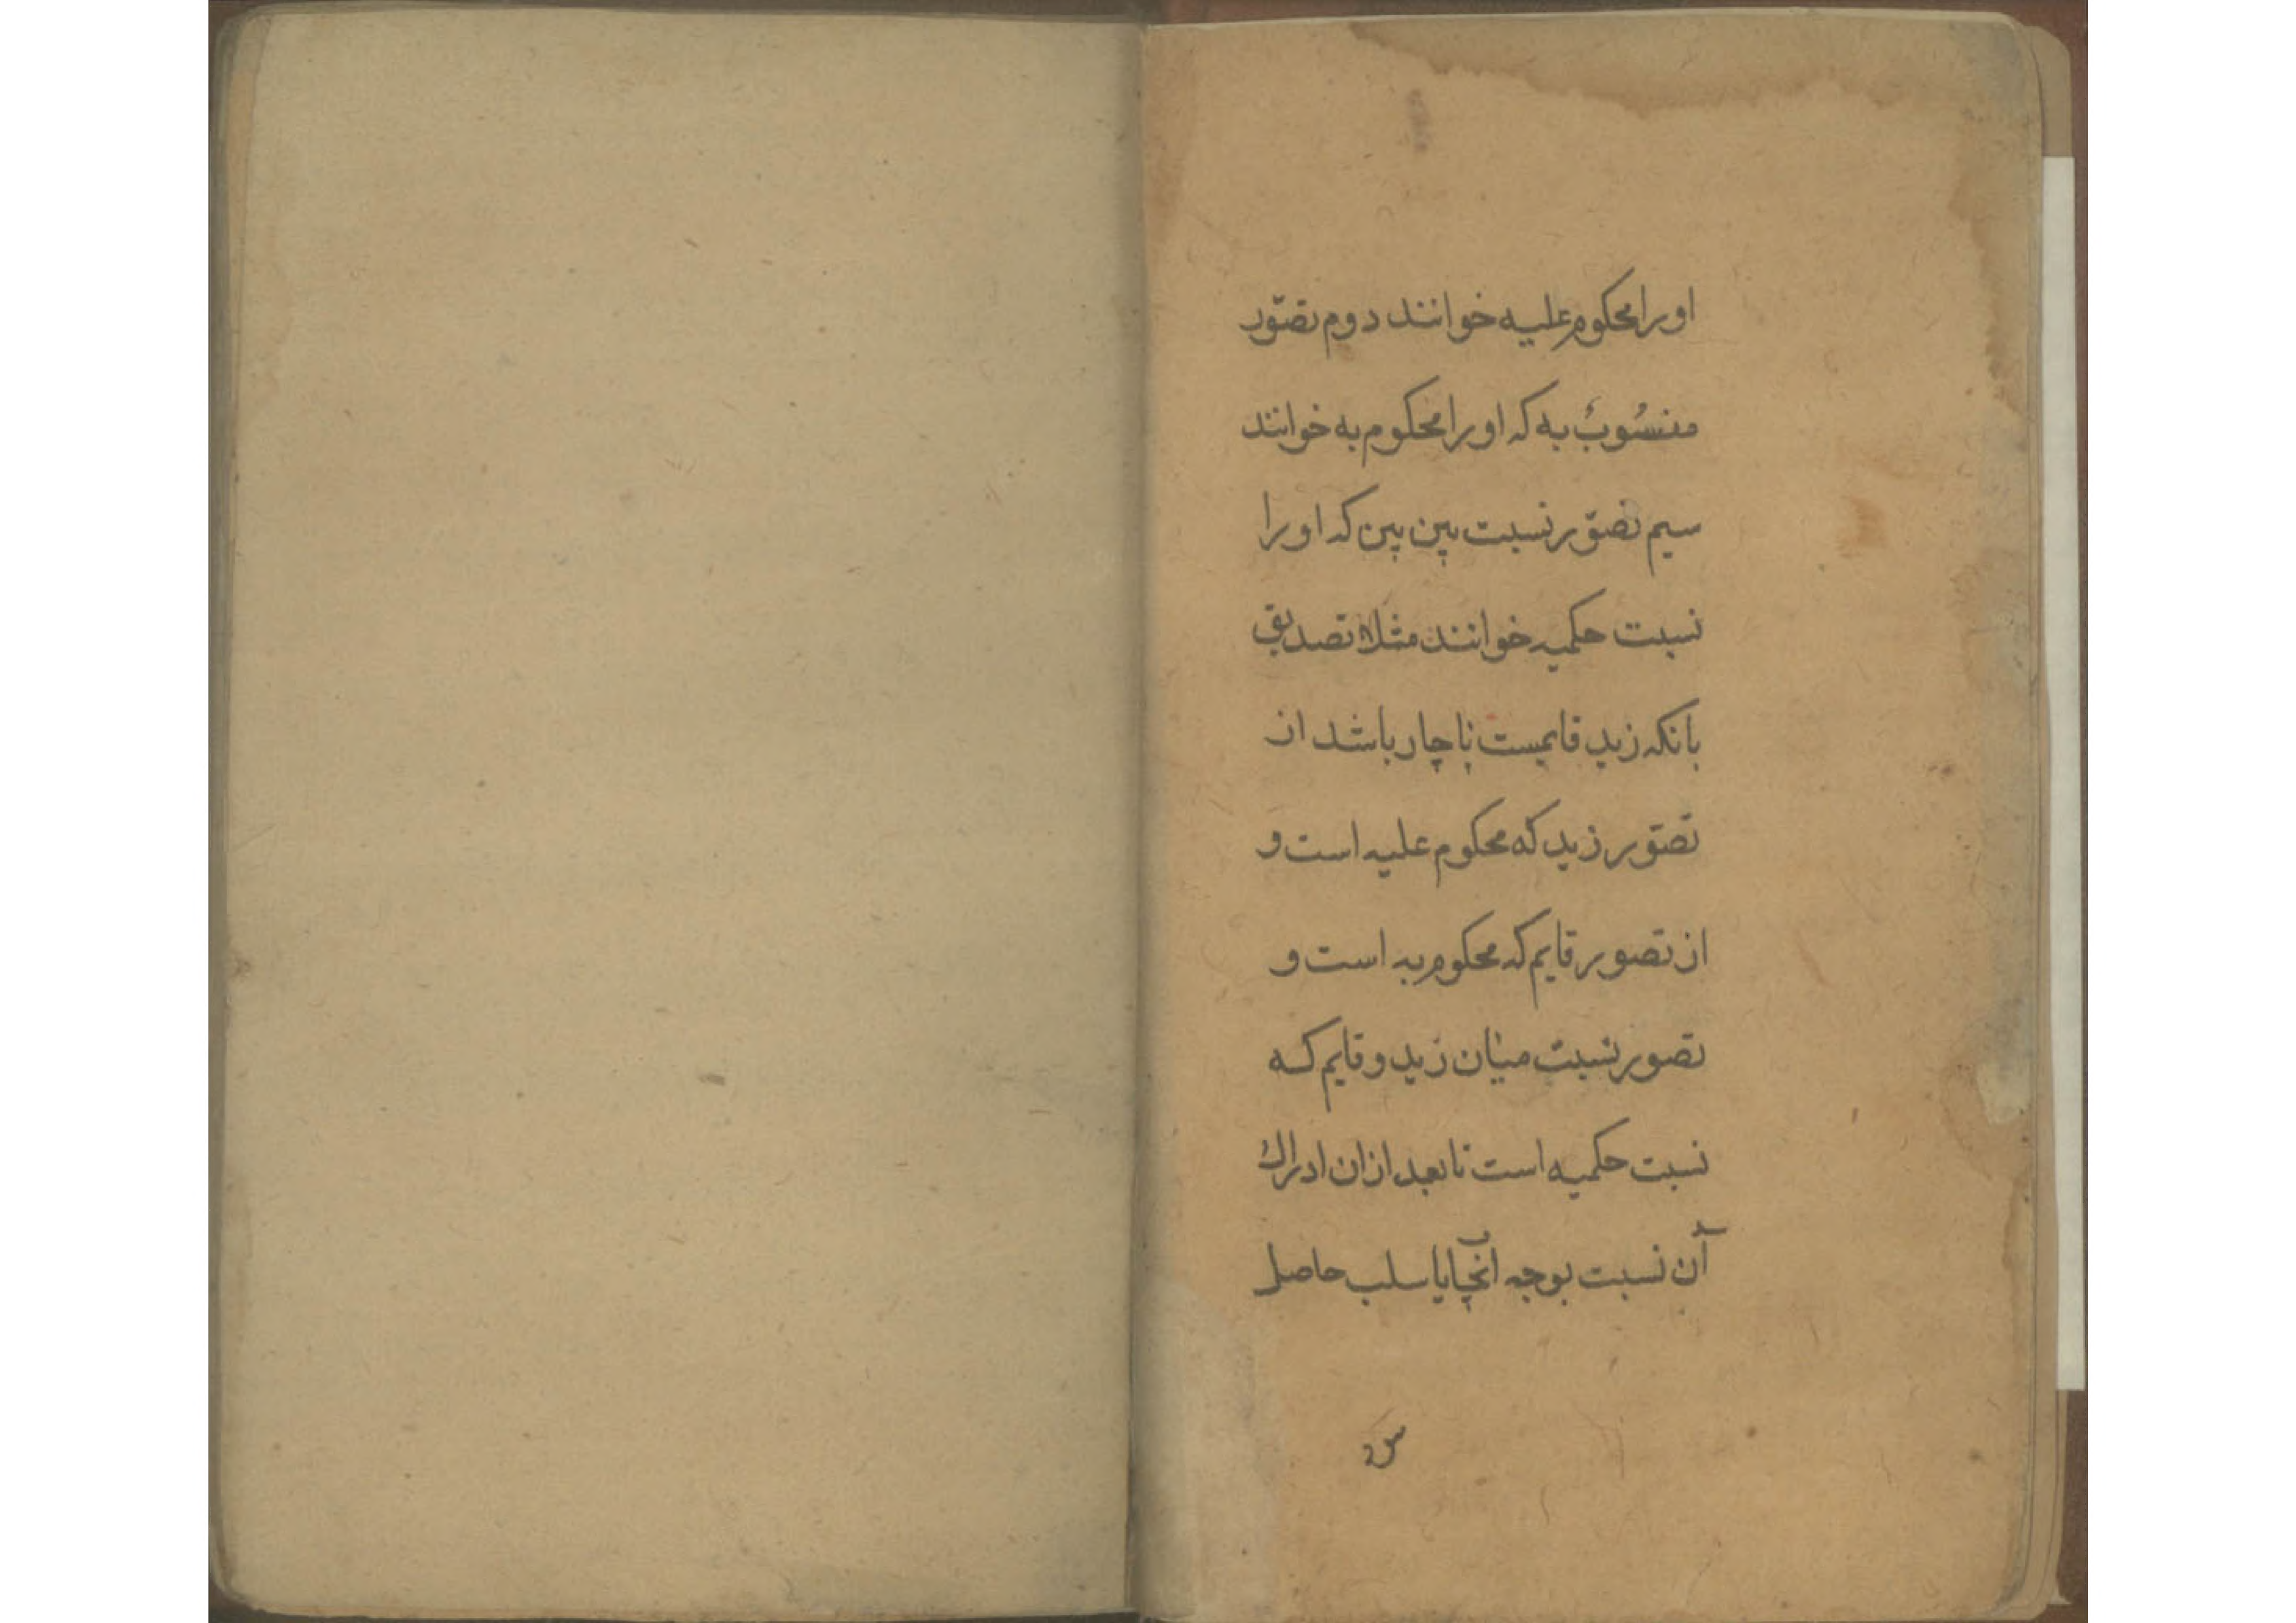 او را محکوم علیه خوانند دوم تصوّر
منسُوبٌ به که او را محکوم به خوانند
سیم تصوّر نسبت بین بین که او را
نسبت حکمیه خوانند مثلا تصدیق
بانکه زید قایمست ناچار باشد از
تصوّر زید که محکوم علیه است و
از تصور قایم که محکوم به است و
تصور نسبت میان زید و قایم که
نسبت حکمیه است تا بعد از ان ادراک
آن نسبت بوجه ایجاب یا سلب حاصل